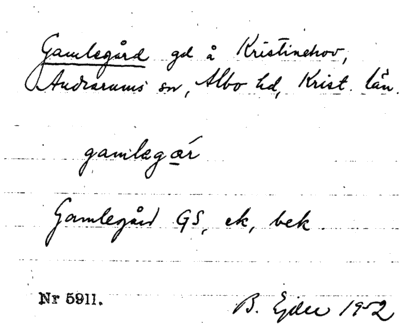 Gamlegård gd å Kristinehov,
Andrarums sn, Albo hd, Krist. län.
gamlegår
Gamlegård GS, ek, bek.
Nr 5911.
B. Ejder 1952